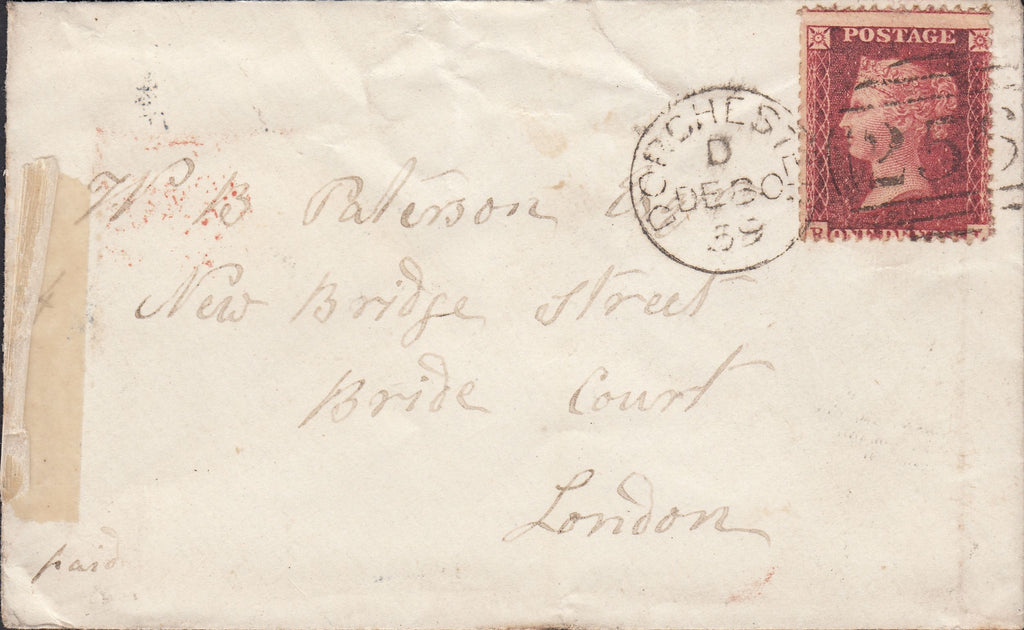 POSTAGE
DORCHESTE
D
DE 30
59
25
W B Paterson
New Bridge Street
Bride Court
London
paid